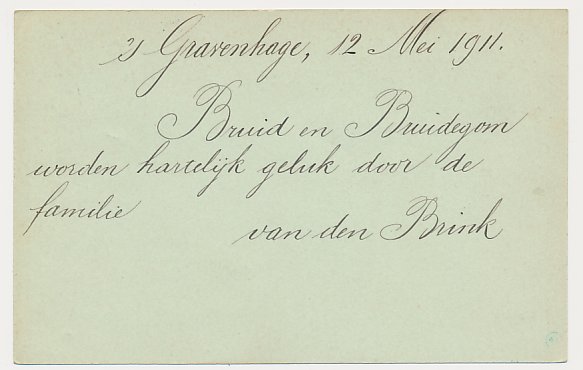 's Gravenhage, 12 Mei 1911.
Bruid en Bruidegom
worden hartelijk geluk door de
familie
van den Brink